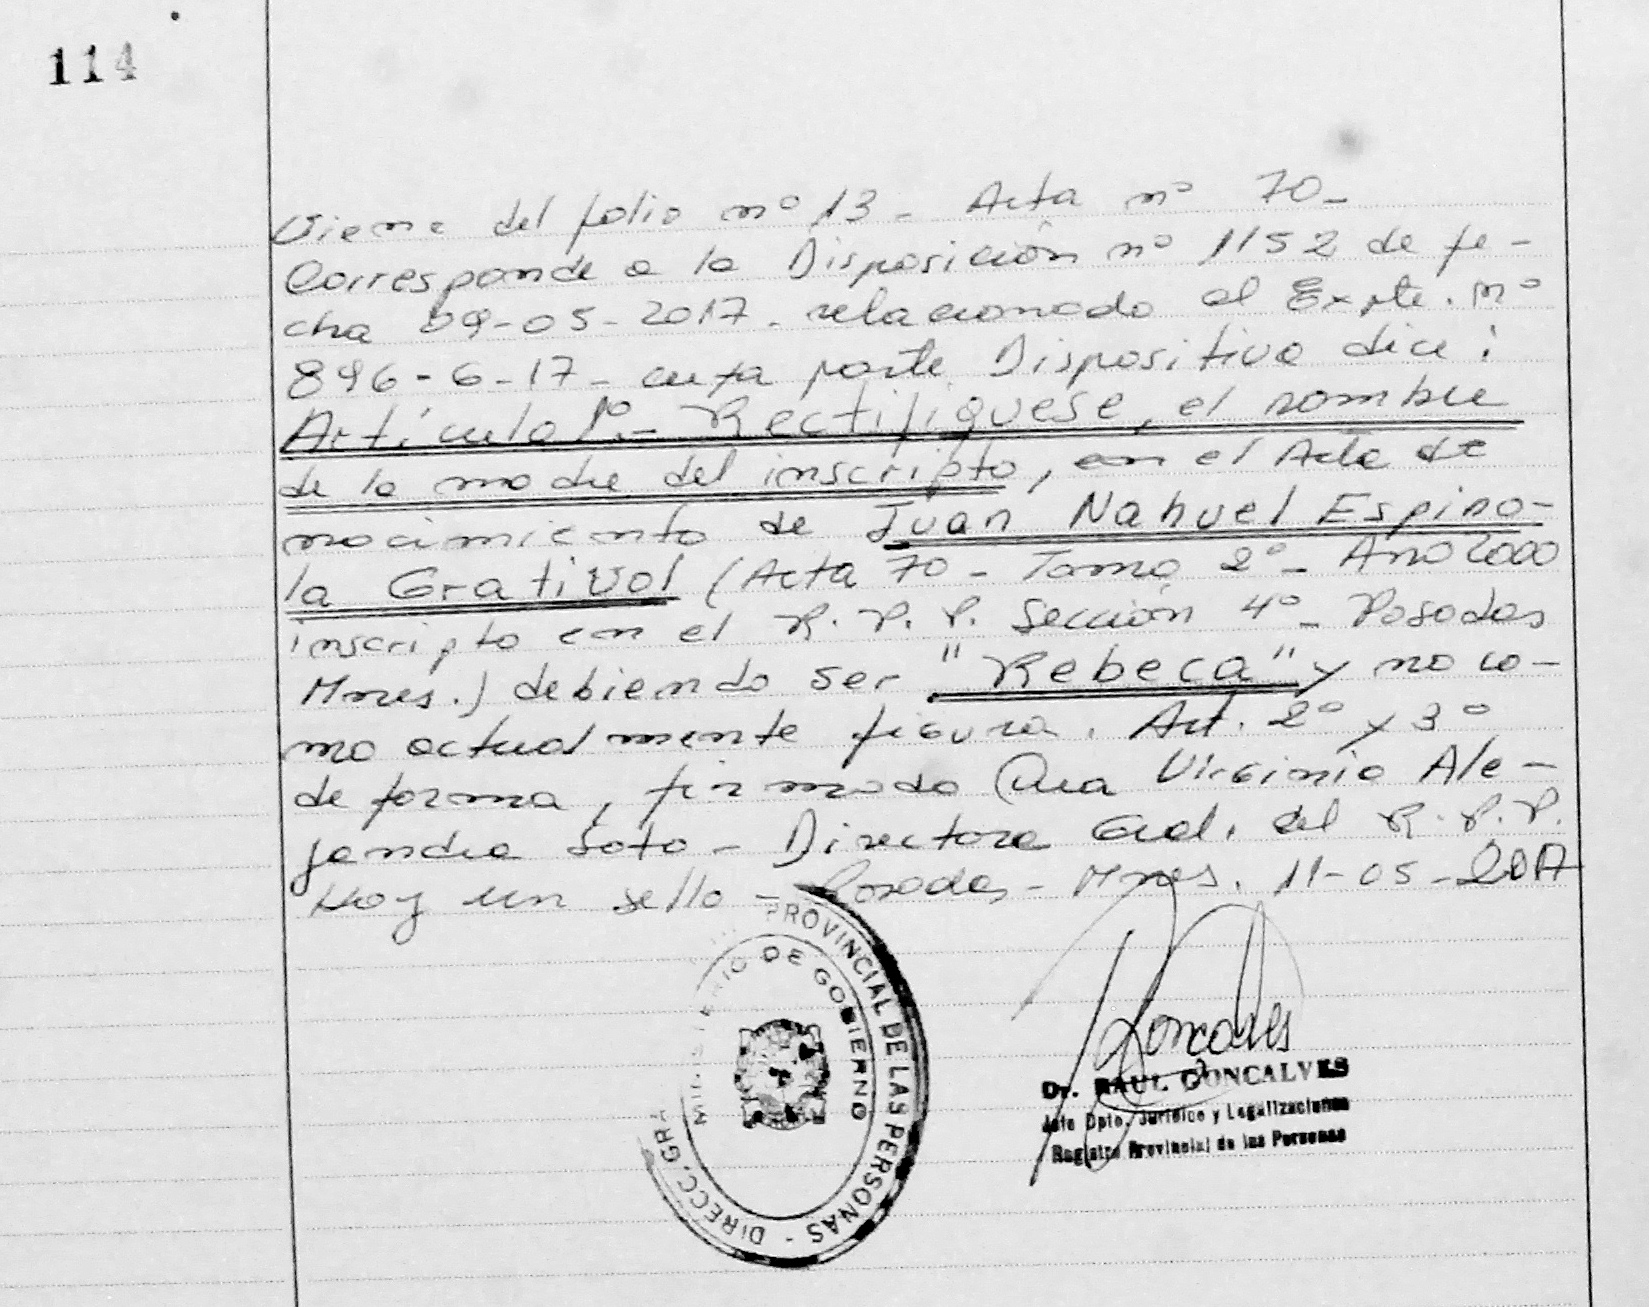 114
Viene del folio nº 13 - Acta nº 70 -
Corresponde a la Disposición nº 1152 de fe-
cha 09-05-2017. relacionado al Expte. nº
896-6-17 - cuya parte Dispositiva dice:
Artículo 1º.- Rectifiquese, el nombre
de la madre del inscripto, en el Acta de
nacimiento de Juan Nahuel Espino-
la Grativol (Acta 70 - Tomo 2º - Año 2000
inscripto en el R.P.P. Sección 4º - Posadas
Mnes.) debiendo ser "Rebeca" y no co-
mo actualmente figura. Art. 2º y 3º
de forma, firmado Dra Virginia Ale-
jandra Soto - Directora Gral. del R.P.P.
Hay un sello - Posadas - Mnes. 11-05-2017
PROVINCIAL DE LAS PERSONAS - DIRECC. GRA
MINISTERIO DE GOBIERNO
Goncalves
Dr. RAUL GONCALVES
Jefe Dpto. Jurídico y Legalizaciones
Registro Provincial de las Personas